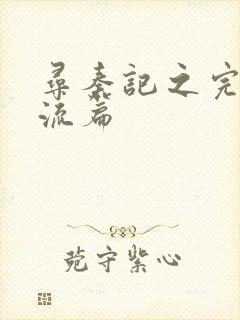 尋秦記之完
流篇
苑守紫心